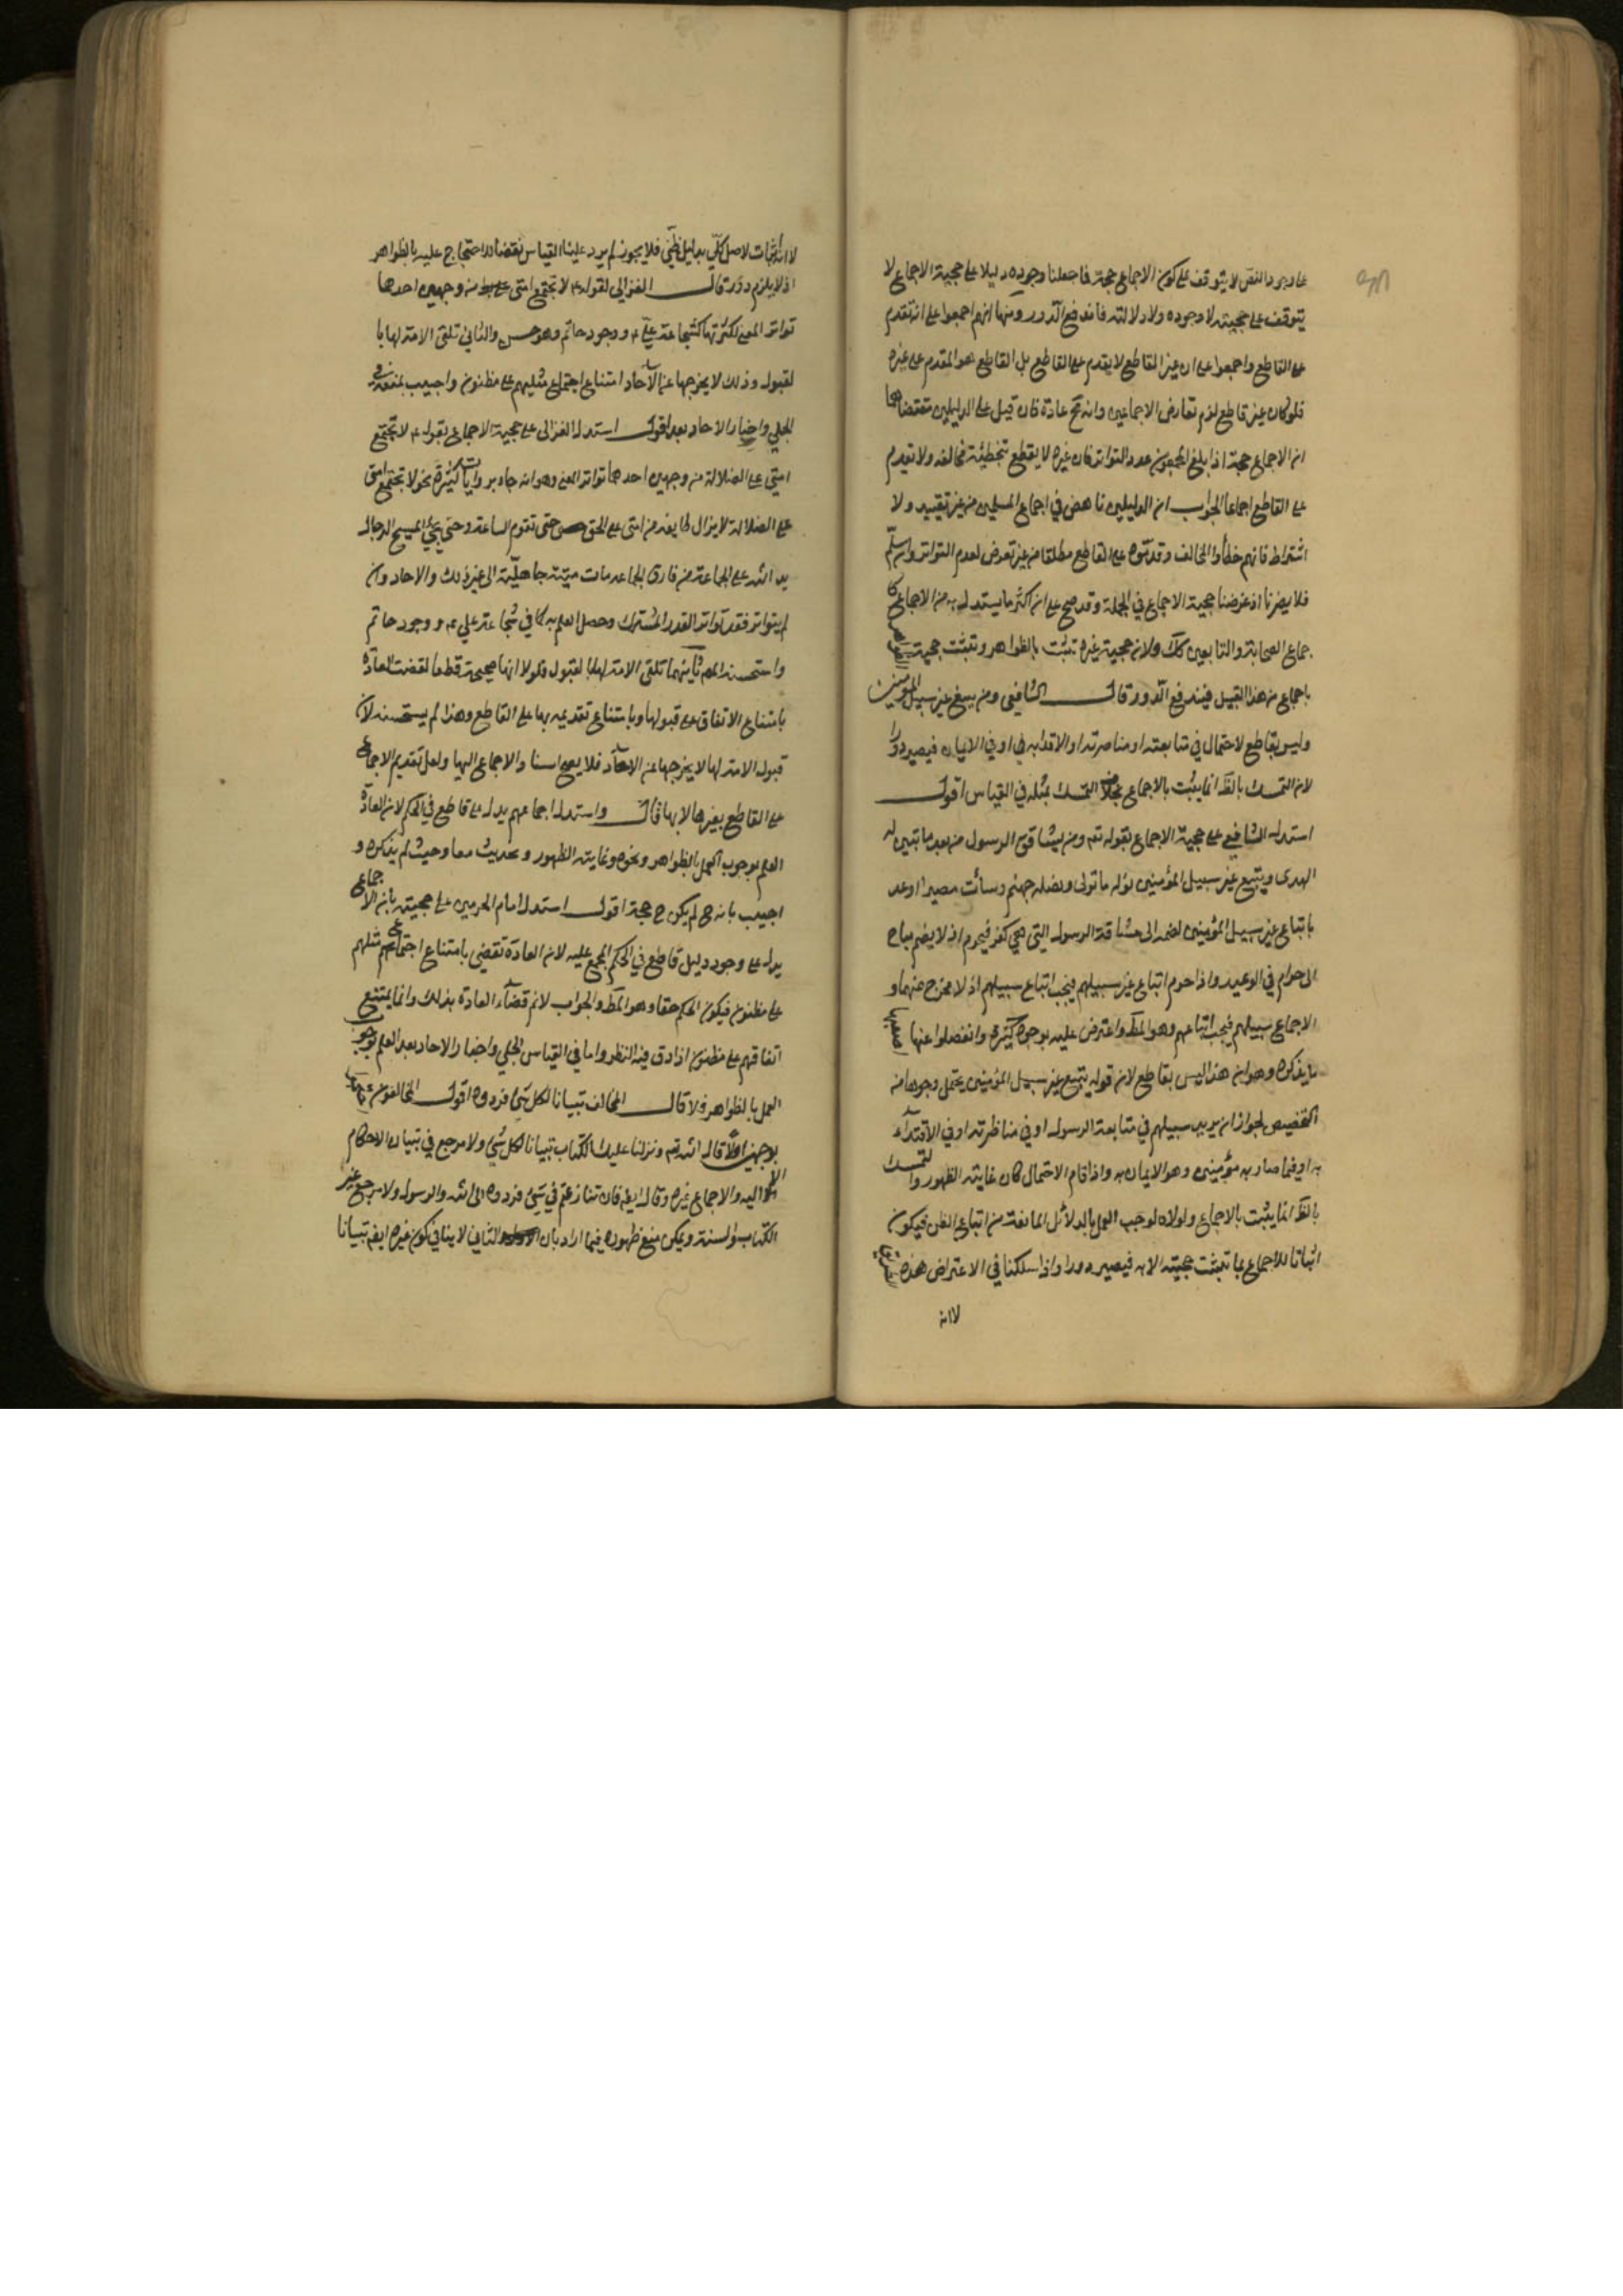 على وجود النص لا يتوقف على كون الاجماع حجة فاجعلنا وجوده دليلا على حجية الاجماع لا
يتوقف على حجيته لا وجوده ولا دلالته فاندفع الدور ومنها انهم اجمعوا على انه تقدم
على القاطع واجمعوا على ان غير القاطع لا يقدم على القاطع بل القاطع هو المقدم على غيره
فلو كان غير قاطع لزم تعارض الاجماعين وانه مح عادة فان قيل على الدليلين مقتضاهما
ان الاجماع حجة اذا بلغ المجمعون عدد التواتر فان غيره لا يقطع بتخطئة مخالفه ولا تقدم
على القاطع اجماعا الجواب ان الدليلين ناهض في اجماع المسلمين من غير تقييد ولا
اشتراط فانهم خطأوا المخالف وقدموه على القاطع مطلقا من غير تعرض لعدم التواتر وان سلم
فلا يضرنا اذ غرضنا حجية الاجماع في الجملة وقد صح على ان اكثر ما يستدل به من الاجماع كا
جماع الصحابة والتابعين كك ولان حجية غيره تثبت بالظواهر وتثبت حجية
باجماع من هذا القبيل فيندفع الدور قال الشافعي ومن يبتغ غير سبيل المؤمنين
وليس بقاطع لاحتمال في متابعته او مناصرته او الاقتداء به او في الايمان فيصير دورا
لان التمسك بالظ انما يثبت بالاجماع بخلاف التمسك بمثله في القياس اقول
استدل الشافعي على حجية الاجماع بقوله تعم ومن يشاقق الرسول من بعد ما تبين له
الهدى ويتبع غير سبيل المؤمنين نوله ما تولى ونصله جهنم وسأت مصيرا اوعد
باتباع غير سبيل المؤمنين لضمه الى مشاقة الرسول التي هي كفر فيحرم اذ لا يضم مباح
الى حرام في الوعيد واذا حرم اتباع غير سبيلهم فيجب اتباع سبيلهم اذ لا مخرج عنهما و
الاجماع سبيلهم فيجب اتباعهم وهو المط واعترض عليه بوجوه كثيرة وانفصلوا عنها
ما يذكره وهو ان هذا ليس بقاطع لان قوله يتبع غير سبيل المؤمنين يحتمل وجوها من
التخصيص لجواز ان يريد سبيلهم في متابعة الرسول او في مناظرته او في الاقتداء
به او فيما صاروا به مؤمنين وهو الايمان به واذا قام الاحتمال كان غايته الظهور والتمسك
بالظ انما يثبت بالاجماع ولولاه لوجب العمل بالدلائل المانعة من اتباع الظن فيكون
اثباتا للاجماع بما تثبت حجيته الا به فيصير دورا واذا سلكنا في الاعتراض هذه الطريق
لا انه
لا انه اثبات لاصل كلي بدليل ظني فلا يجوز لم يرد علينا القياس نقضا للاحتجاج عليه بالظواهر
اذ لا يلزم دور قال الغزالي لقوله ع لا تجتمع امتي من وجهين احدها
تواتر المعنى لكثرتها كشجاعة علي ع ووجود حاتم وهو حسن والثاني تلقي الامة لها با
لقبول وذلك لا يخرجها عن الآحاد امتناع اجتماع مثلهم على مظنون واجيب بمنعه في
الجلي واخبار الاحاد بعد اقول استدل الغزالي على حجية الاجماع بقوله ع لا تجتمع
امتي على الضلالة من وجهين احدهما تواتر المعنى وهو انه جاء بروايات كثيرة نحو لا تجتمع امتي
على الضلالة لا يزال طايفة من امتي على الحق حتى تقوم الساعة وحتى يجئ المسيح الدجال
يد الله على الجماعة من فارق الجماعة مات ميتة جاهلية الى غير ذلك والاحاد وان
لم يتواتر فقد تواتر القدر المشترك وحصل العلم به كما في شجاعة علي ع ووجود حاتم
واستحسنه المص ثانيهما تلقي الامة لها بالقبول فلولا انها صحيحة قطعا لقضت العادة
بامتناع الاتفاق على قبولها وبامتناع تقديمه بها على القاطع وهذا لم يستحسنه لان
قبول الامة لها لا يخرجها عن الاحاد فلا يصح اسناد الاجماع اليها ولعل تقديم الاجماع
على القاطع بغيرها لا بها قال واستدل اجماعهم يدل على قاطع في الحكم لان العادة
العلم بوجوب العمل بالظواهر ونحوه وغايته الظهور وبحديث معاذ حيث لم يذكره و
اجيب بانه ح لم يكن ح حجة اقول استدل امام الحرمين على حجيته بان الاجماع
يدل على وجود دليل قاطع في الحكم المجمع عليه لان العادة تقضي بامتناع اجتماع مثلهم
على مظنون فيكون الحكم حقا وهو المط والجواب لانم قضاء العادة بذلك وانما يمتنع
اتفاقهم على مظنون اذا دق فيه النظر واما في القياس الجلي واخبار الاحاد بعد العلم بوجوب
العمل بالظواهر فلا قال المخالف تبيانا لكل شئ فردوه اقول المخالفون
بوجهين اولا قال الله تع ونزلنا عليك الكتاب تبيانا لكل شئ ولا مرجع في تبيان الاحكام
الا اليه والاجماع غيره وقال ايضا فان تنازعتم في شئ فردوه الى الله والرسول ولا مرجع غير
الكتاب والسنة ويمكن منع ظهوره فيما اراد بان الثاني لا ينافي كون غيره ايضا تبيانا